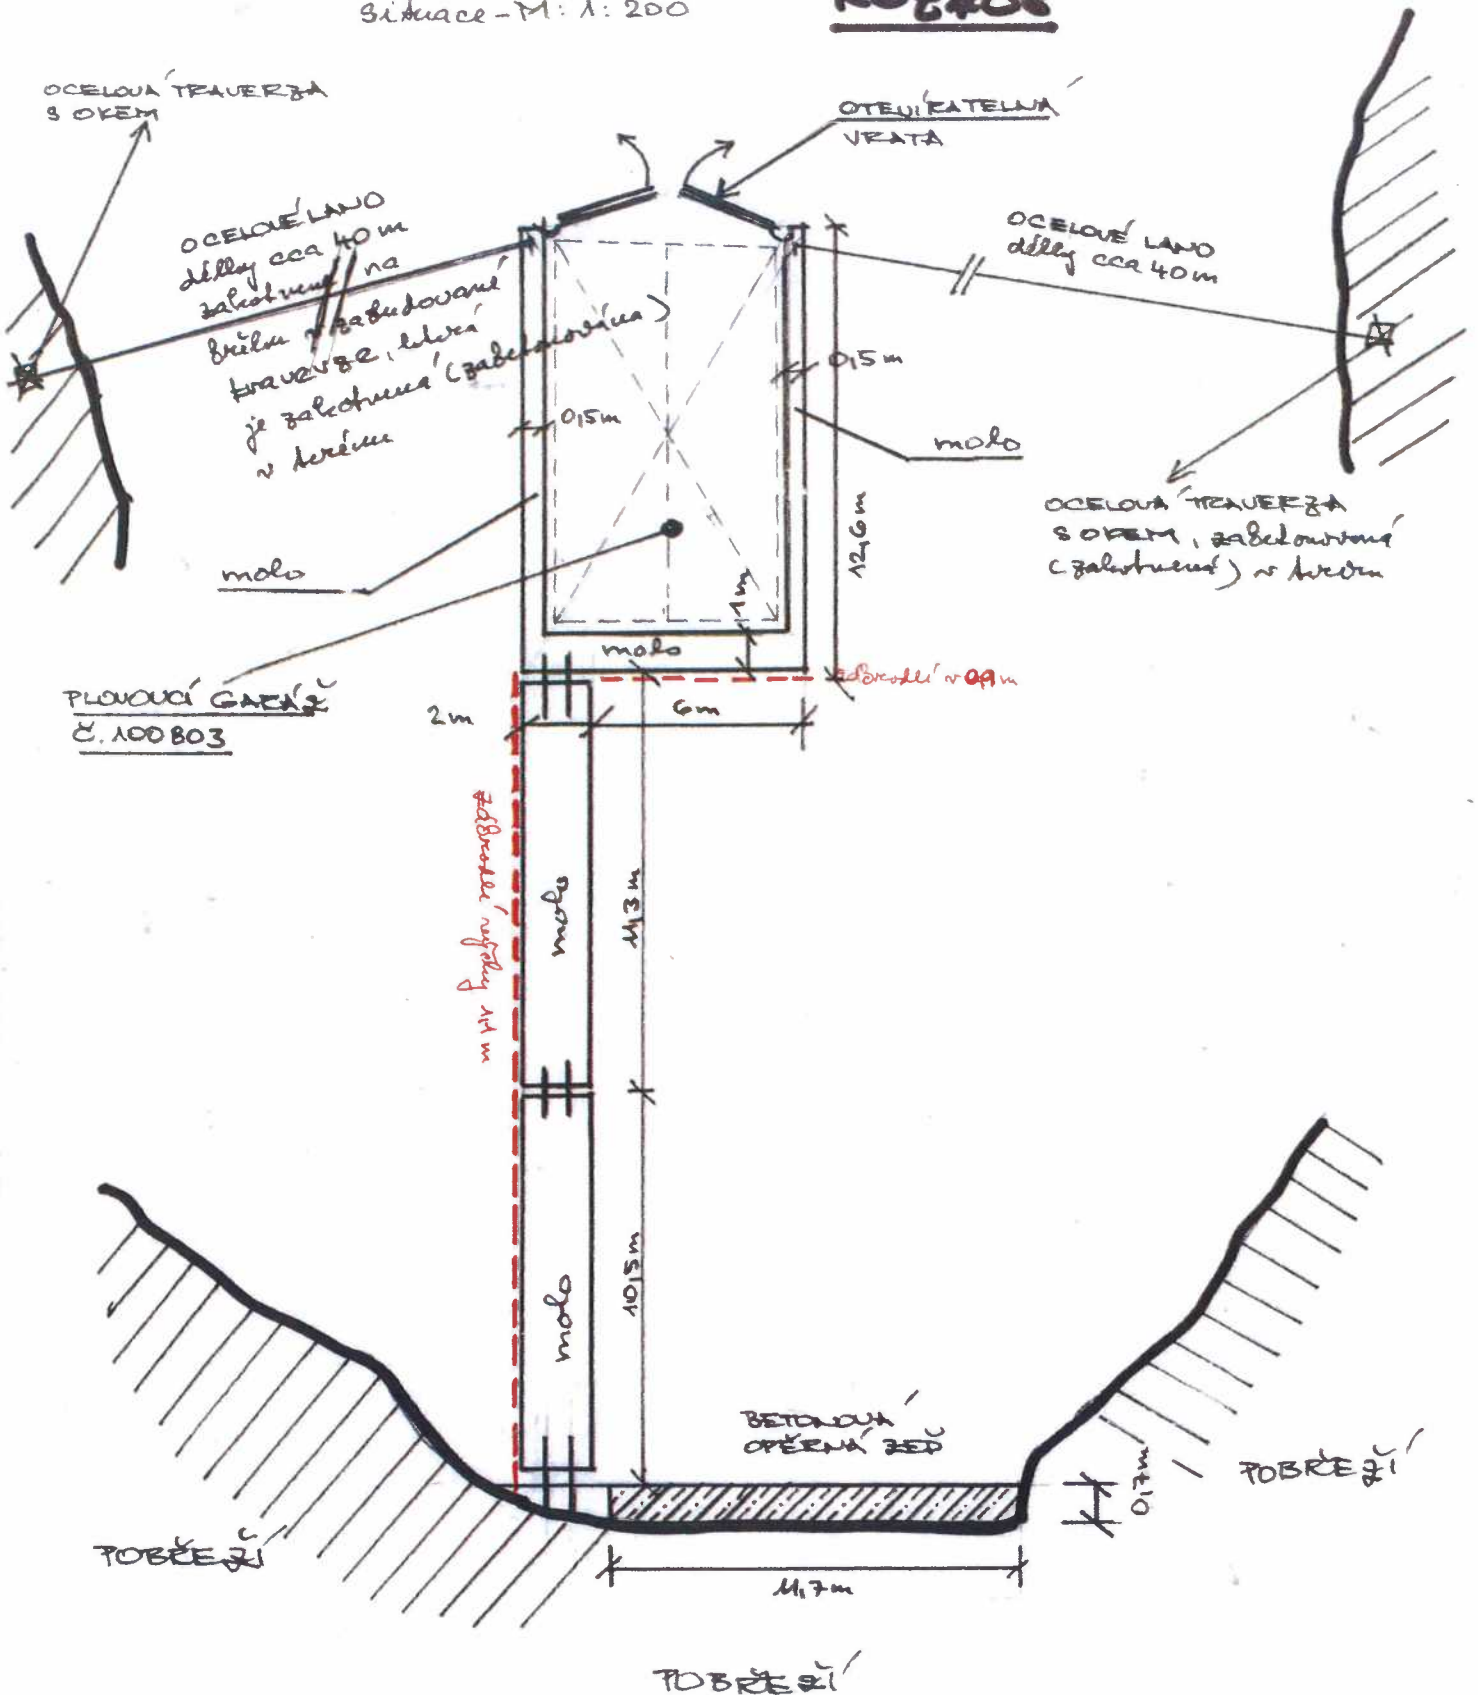 Situace - M: 1: 200
OCELOVÁ TRAVERZA
S OKEM
OTEVÍRATELNÁ
VRATA
OCELOVÉ LANO
délky cca 40 m
zakotvené na
břehu v zabudované
traverze, která
je zakotvená (zabetonována)
v terénu
OCELOVÉ LANO
délky cca 40 m
0,5 m
0,5 m
molo
molo
12,6 m
OCELOVÁ TRAVERZA
S OKEM, zabetonovaná
(zakotvená) v terénu
1 m
molo
zábradlí v
PLOVOUCÍ GARÁŽ
Č. 100803
2 m
6 m
zábradlí výšky 1,1 m
molo
11,3 m
molo
10,5 m
BETONOVÁ
OPĚRNÁ ZEĎ
0,7 m
POBŘEŽÍ
POBŘEŽÍ
11,7 m
POBŘEŽÍ